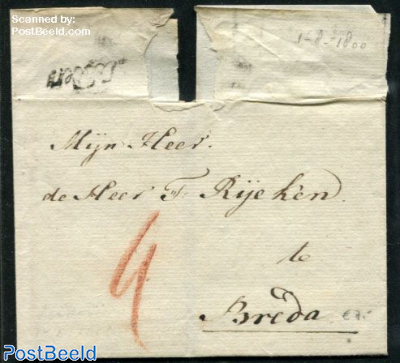 Scanned by:
PostBeeld.com
1-8-1800
Mijn Heer.
de Heer F. Rijeken.
te
Breda
4
PostBeeld